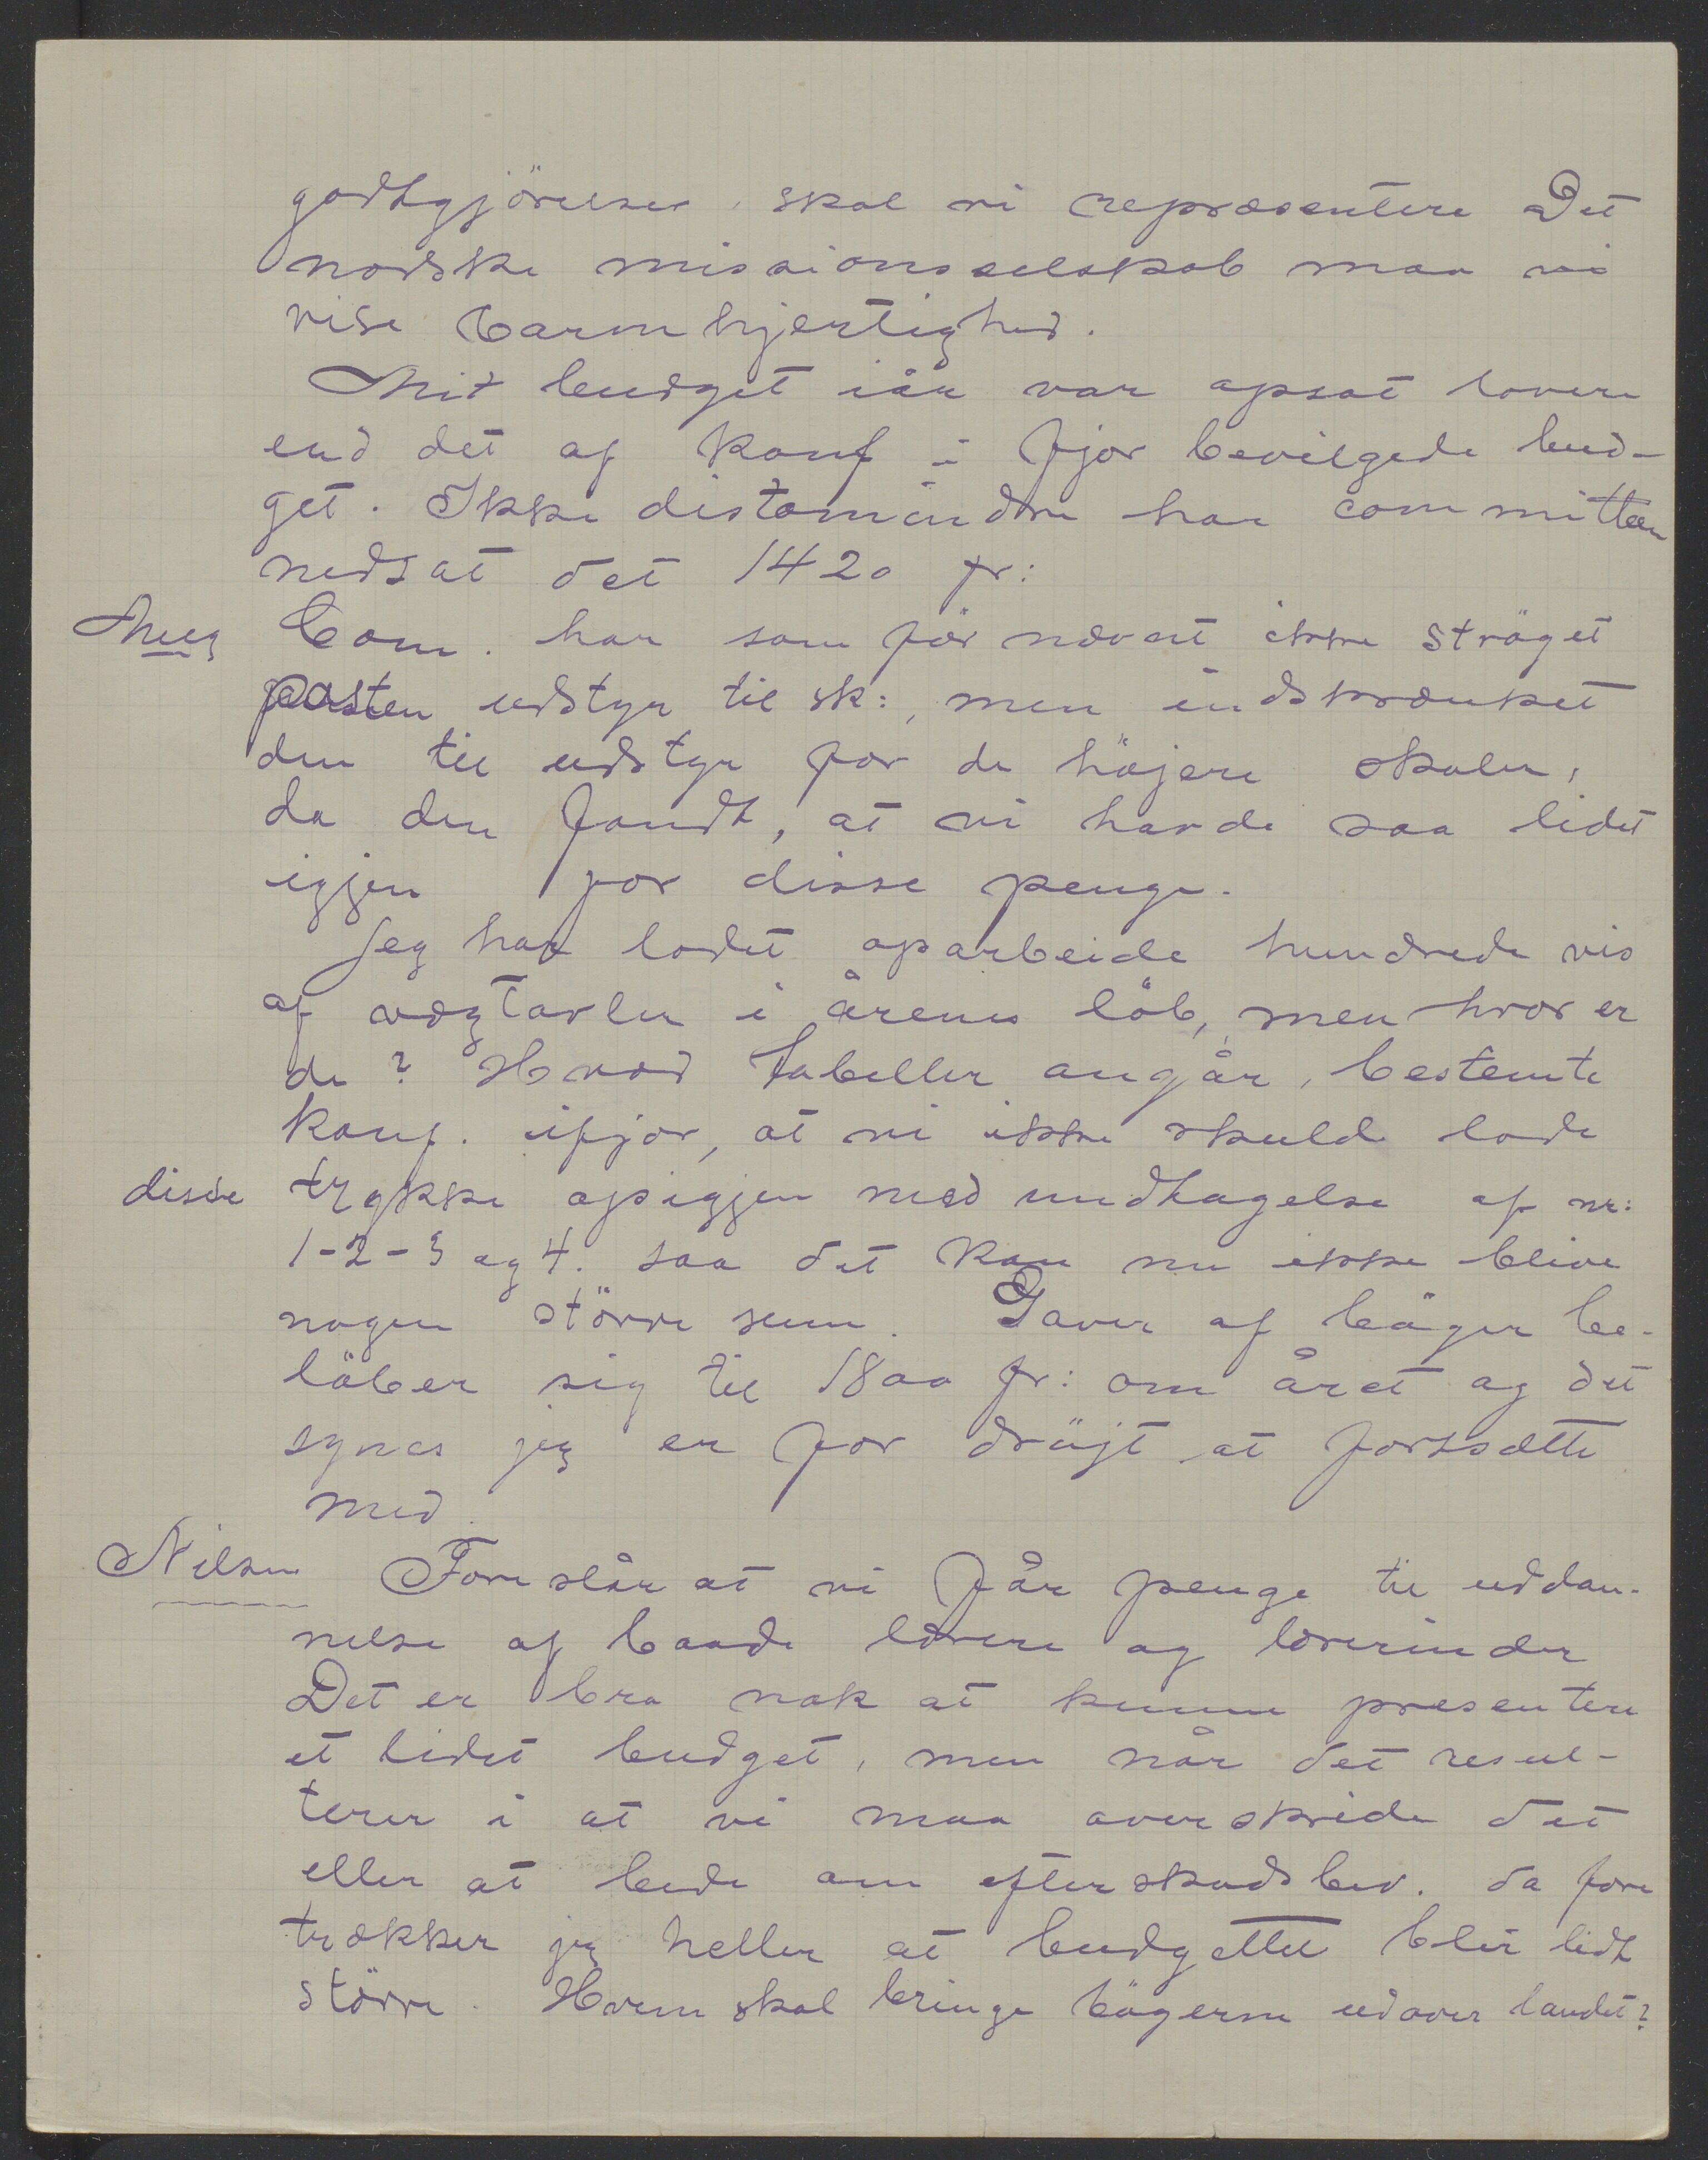 godtgjörelser, skal vi repræsentere Det
norske missionsselskab maa vi
vise barmhjertighed.
Mit budget iår var opsat lavere
end det af Konf i fjor bevilgede bud-
get. Ikke distomindre har committeen
nedsat det 1420 fr:
Meeg Com. har som för nævnt ikke ströget
posten udstyr til sk:, men indskrænket
den til udstyr for de höjere skoler,
da den fandt, at vi havde saa lidet
igjen for disse penge.
Jeg har ladet oparbeide hundrede vis
af vægtavler i årenes löb, men hvor er
de? Hvad tabeller angår, bestemte
Konf. ifjor, at vi ikke skulde lade
disse trykke opigjen med undtagelse af nr:
1-2-3 og 4. saa det kan nu ikke blive
nogen större sum. Gaver af böger be-
löber sig til 1800 fr: om året og det
synes jeg er for dröjt at fortsætte
med.
Nilsen Foreslår at vi får penge til uddan-
nelse af baade lærere og lærerinder
Det er bra nok at kunne presentere
et lidet budget, men når det resul-
terer i at vi maa overskride det
eller at bede om efterskudsbev. da fore
trækker jeg heller at budgettet blir lidt
större. Hvem skal bringe bögerne udover landet?